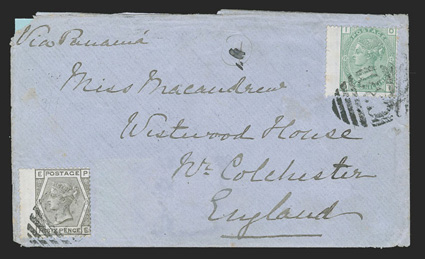 Via Panamá
Miss Macandrew
Westwood House
Nr. Colchester
England
POSTAGE
E P
SIX PENCE